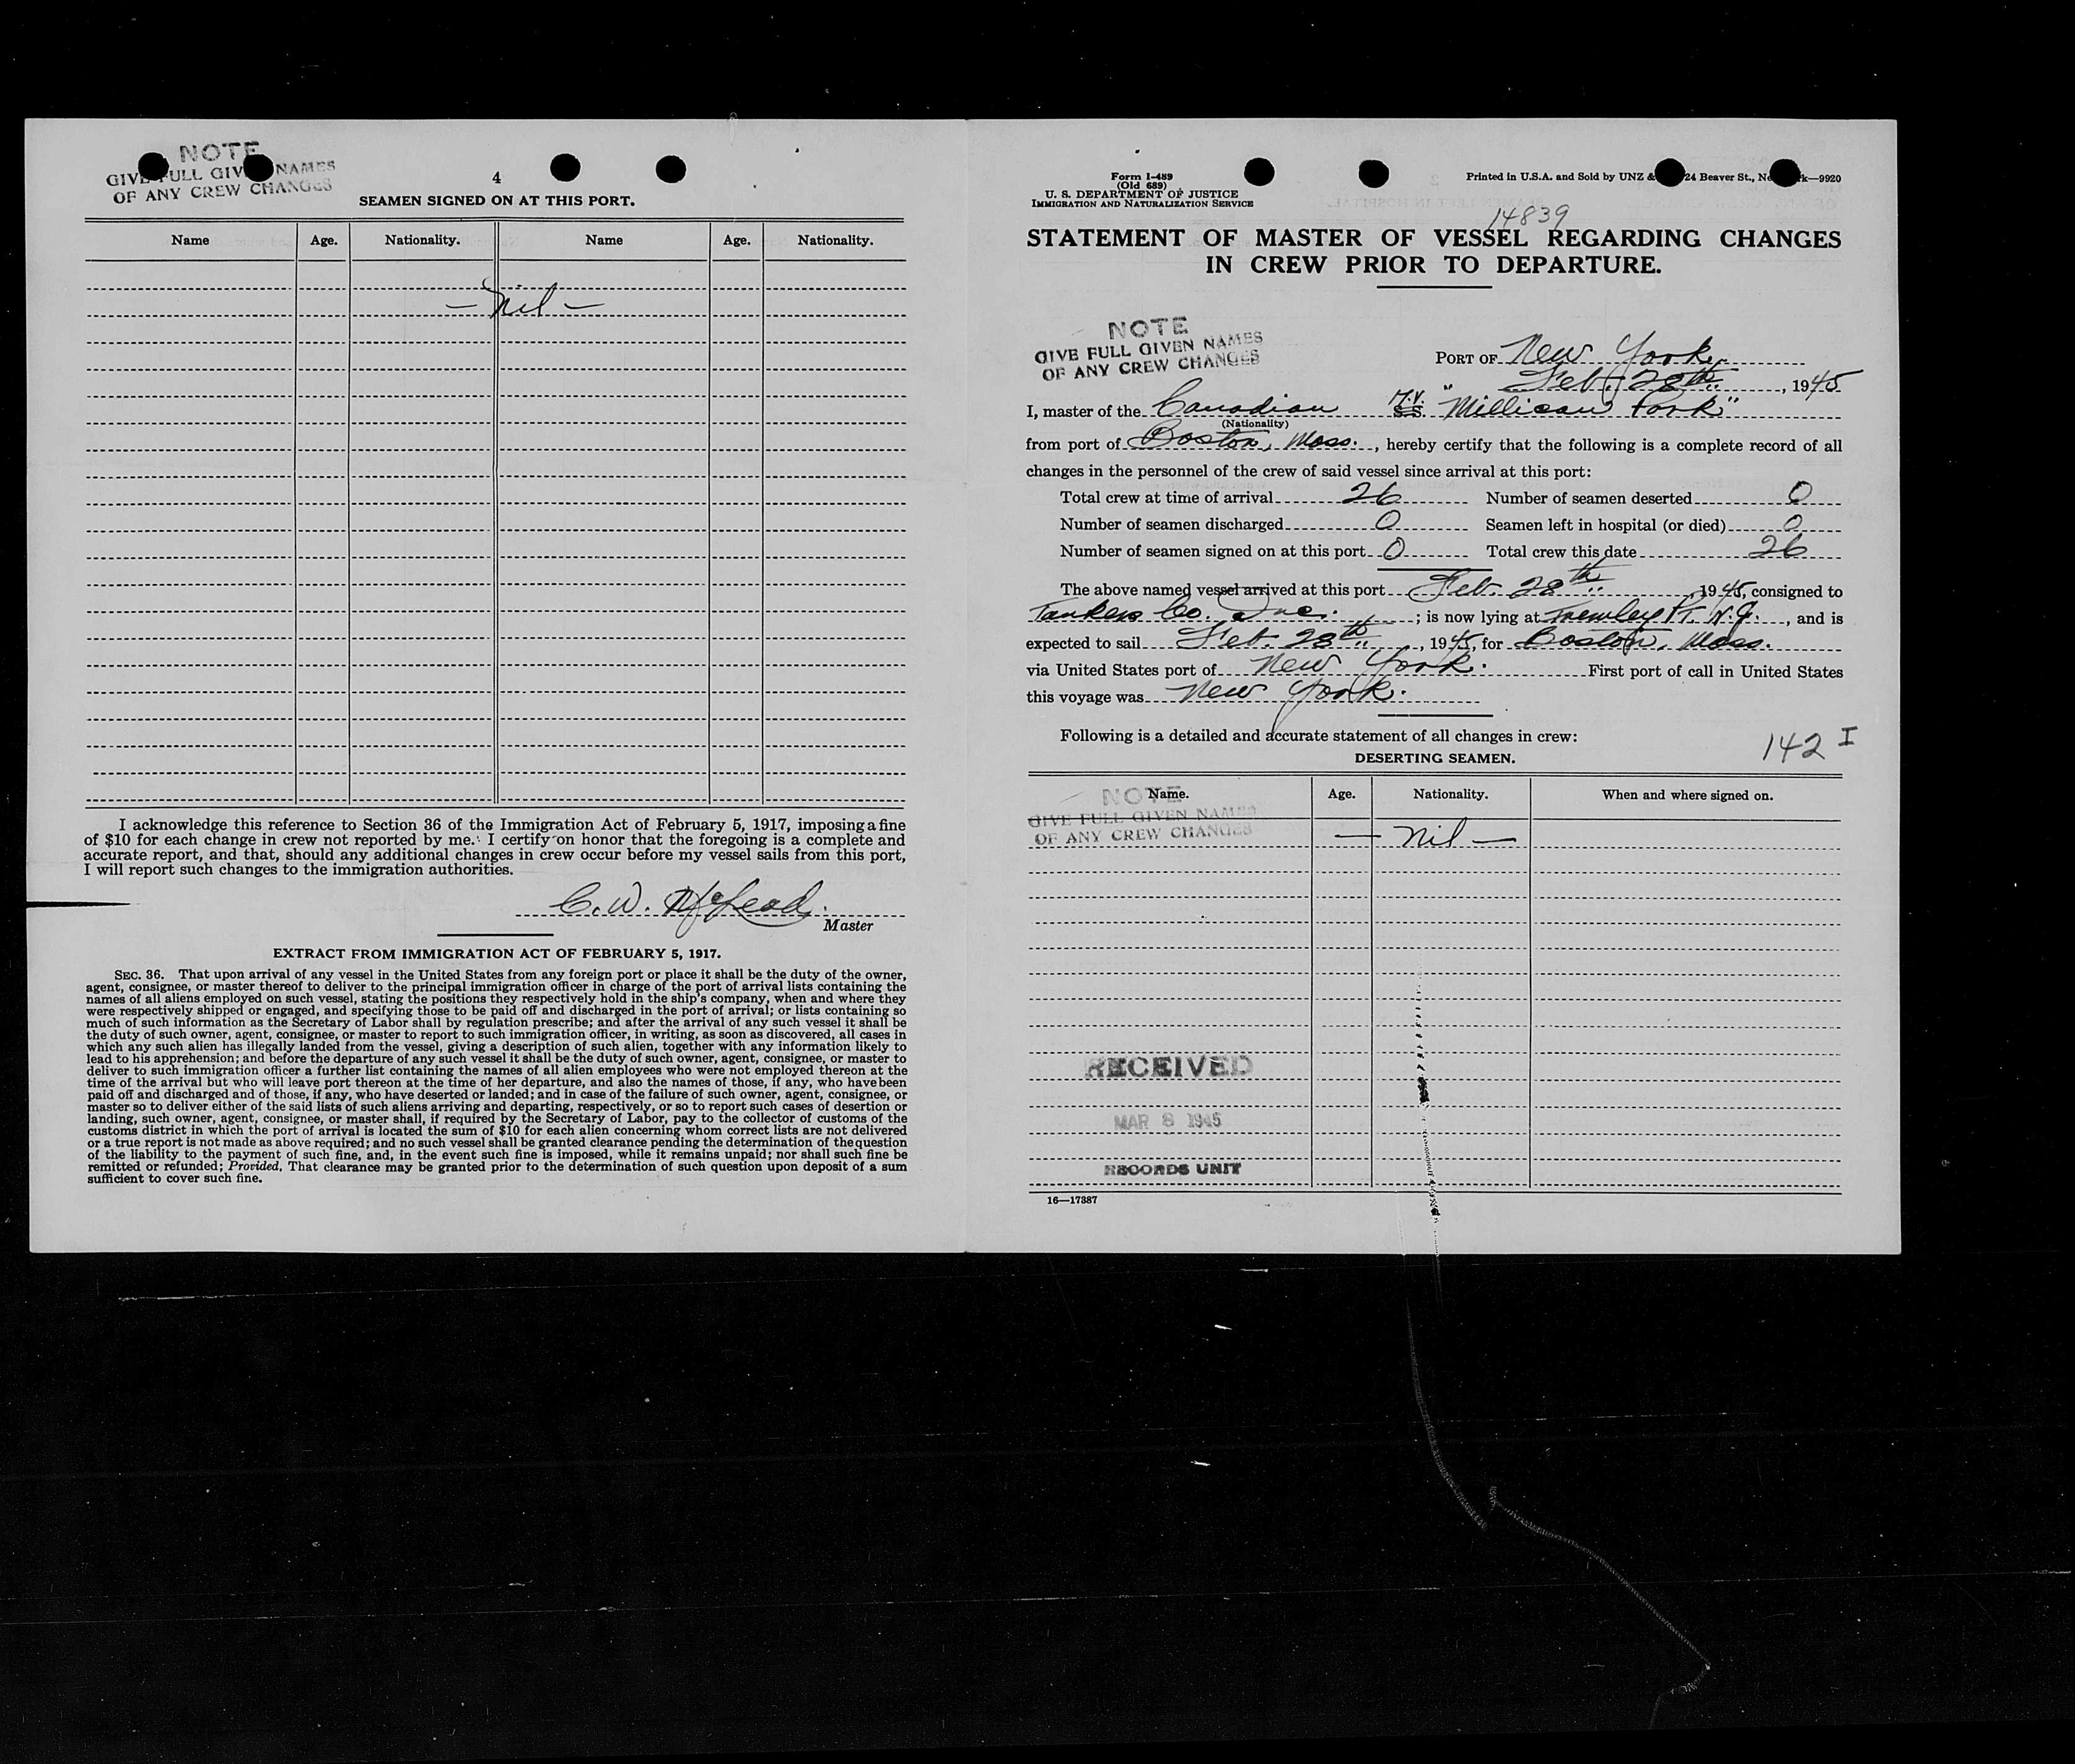 NOTE
GIVE FULL GIVEN NAMES
OF ANY CREW CHANGES
4
SEAMEN SIGNED ON AT THIS PORT.
Name Age. Nationality. Name Age. Nationality.
— Nil —
I acknowledge this reference to Section 36 of the Immigration Act of February 5, 1917, imposing a fine
of $10 for each change in crew not reported by me. I certify on honor that the foregoing is a complete and
accurate report, and that, should any additional changes in crew occur before my vessel sails from this port,
I will report such changes to the immigration authorities.
C. W. McLeod.
Master
EXTRACT FROM IMMIGRATION ACT OF FEBRUARY 5, 1917.
SEC. 36. That upon arrival of any vessel in the United States from any foreign port or place it shall be the duty of the owner,
agent, consignee, or master thereof to deliver to the principal immigration officer in charge of the port of arrival lists containing the
names of all aliens employed on such vessel, stating the positions they respectively hold in the ship's company, when and where they
were respectively shipped or engaged, and specifying those to be paid off and discharged in the port of arrival; or lists containing so
much of such information as the Secretary of Labor shall by regulation prescribe; and after the arrival of any such vessel it shall be
the duty of such owner, agent, consignee, or master to report to such immigration officer, in writing, as soon as discovered, all cases in
which any such alien has illegally landed from the vessel, giving a description of such alien, together with any information likely to
lead to his apprehension; and before the departure of any such vessel it shall be the duty of such owner, agent, consignee, or master to
deliver to such immigration officer a further list containing the names of all alien employees who were not employed thereon at the
time of the arrival but who will leave port thereon at the time of her departure, and also the names of those, if any, who have been
paid off and discharged and of those, if any, who have deserted or landed; and in case of the failure of such owner, agent, consignee, or
master so to deliver either of the said lists of such aliens arriving and departing, respectively, or so to report such cases of desertion or
landing, such owner, agent, consignee, or master shall, if required by the Secretary of Labor, pay to the collector of customs of the
customs district in which the port of arrival is located the sum of $10 for each alien concerning whom correct lists are not delivered
or a true report is not made as above required; and no such vessel shall be granted clearance pending the determination of the question
of the liability to the payment of such fine, and, in the event such fine is imposed, while it remains unpaid; nor shall such fine be
remitted or refunded; Provided, That clearance may be granted prior to the determination of such question upon deposit of a sum
sufficient to cover such fine.
Form I-489
(Old 689)
U. S. DEPARTMENT OF JUSTICE
IMMIGRATION AND NATURALIZATION SERVICE
Printed in U.S.A. and Sold by UNZ & 24 Beaver St., Ne k—9920
14839
STATEMENT OF MASTER OF VESSEL REGARDING CHANGES
IN CREW PRIOR TO DEPARTURE.
NOTE
GIVE FULL GIVEN NAMES
OF ANY CREW CHANGES
PORT OF New York.
Feb. 28th, 1945
I, master of the Canadian M.V. SS. "Millican Park"
(Nationality)
from port of Boston, Mass., hereby certify that the following is a complete record of all
changes in the personnel of the crew of said vessel since arrival at this port:
Total crew at time of arrival 26 Number of seamen deserted 0
Number of seamen discharged 0 Seamen left in hospital (or died) 0
Number of seamen signed on at this port 0 Total crew this date 26
The above named vessel arrived at this port Feb. 28th, 1945, consigned to
Tankers Co. Inc.; is now lying at Tremley Pt. N.J., and is
expected to sail Feb. 28th, 1945, for Boston, Mass.
via United States port of New York. First port of call in United States
this voyage was New York.
Following is a detailed and accurate statement of all changes in crew:
142 I
DESERTING SEAMEN.
Name. Age. Nationality. When and where signed on.
NOTE
GIVE FULL GIVEN NAMES
OF ANY CREW CHANGES
— Nil —
RECEIVED
MAR 8 1945
RECORDS UNIT
16—17387